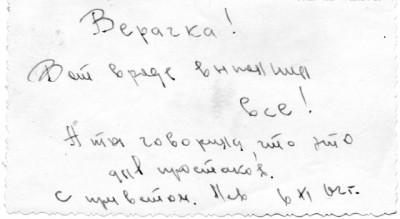 Верачка!
Вот вроде выполнил
все!
А ты говорила что это
для простаков.
с приветом. Лев 6 XI 62г.